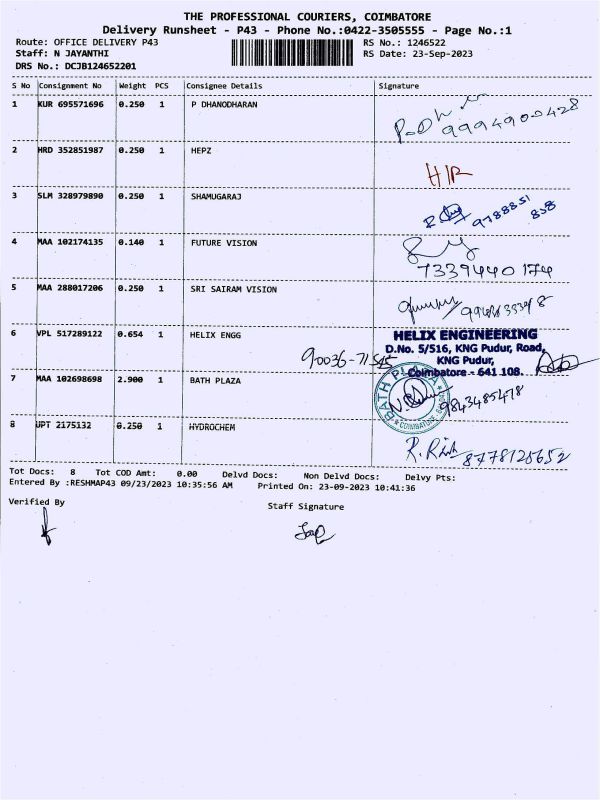 THE PROFESSIONAL COURIERS, COIMBATORE
Delivery Runsheet - P43 - Phone No.:0422-3505555 - Page No.:1
Route: OFFICE DELIVERY P43 RS No.: 1246522
Staff: N JAYANTHI RS Date: 23-Sep-2023
DRS No.: DCJB124652201
S No Consignment No Weight PCS Consignee Details Signature
1 KUR 695571696 0.250 1 P DHANODHARAN
9994900428
2 HRD 352851987 0.250 1 HEPZ
3 SLM 328979890 0.250 1 SHAMUGARAJ
9788851
838
4 MAA 102174135 0.140 1 FUTURE VISION
7339440174
5 MAA 288017206 0.250 1 SRI SAIRAM VISION
6 VPL 517289122 0.654 1 HELIX ENGG
HELIX ENGINEERING
D.No. 5/516, KNG Pudur, Road,
KNG Pudur,
Coimbatore - 641 108.
90036-71545
7 MAA 102698698 2.900 1 BATH PLAZA
BATH PLAZA
COIMBATORE
9843485478
8 UPT 2175132 0.250 1 HYDROCHEM
8778125652
Tot Docs: 8 Tot COD Amt: 0.00 Delvd Docs: Non Delvd Docs: Delvy Pts:
Entered By :RESHMAP43 09/23/2023 10:35:56 AM Printed On: 23-09-2023 10:41:36
Verified By Staff Signature